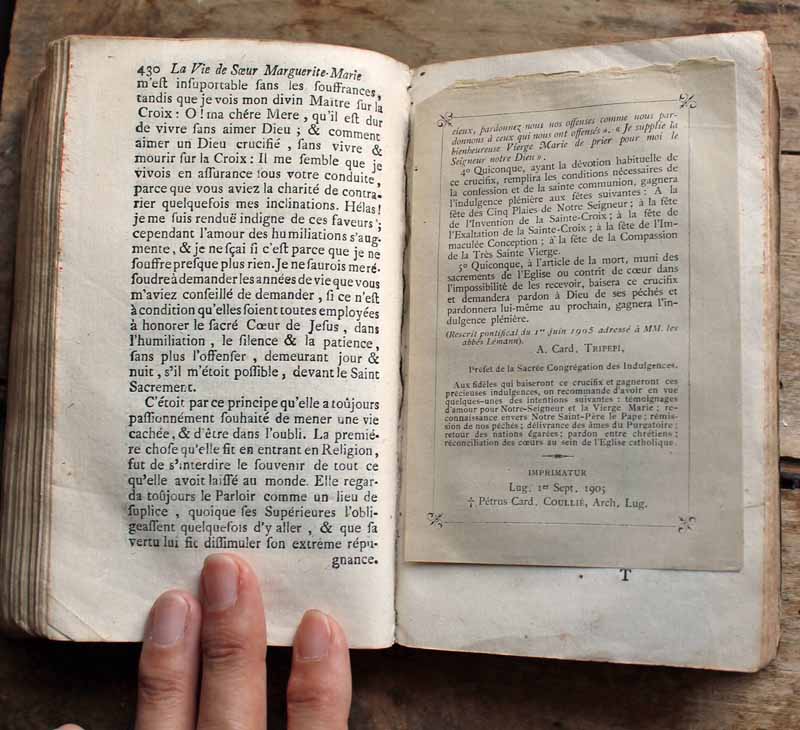 430 La Vie de Sœur Marguerite-Marie
m'eſt inſuportable ſans les ſouffrances,
tandis que je vois mon divin Maître ſur la
Croix : O ! ma chére Mere, qu'il eſt dur
de vivre ſans aimer Dieu ; & comment
aimer un Dieu crucifié , ſans vivre &
mourir ſur la Croix : Il me ſemble que je
vivois en aſſurance ſous votre conduite,
parce que vous aviez la charité de contra-
rier quelquefois mes inclinations. Hélas !
je me ſuis renduë indigne de ces faveurs ;
cependant l'amour des humiliations s'aug-
mente, & je ne ſçai ſi c'eſt parce que je ne
ſouffre preſque plus rien. Je ne ſaurois me ré-
ſoudre à demander les années de vie que vous
m'aviez conſeillé de demander , ſi ce n'eſt
à condition qu'elles ſoient toutes employées
à honorer le ſacré Cœur de Jeſus , dans
l'humiliation , le ſilence & la patience,
ſans plus l'offenſer, demeurant jour &
nuit, s'il m'étoit poſſible, devant le Saint
Sacrement.
C'étoit par ce principe qu'elle a toûjours
paſſionnément ſouhaité de mener une vie
cachée, & d'être dans l'oubli. La premié-
re choſe qu'elle fit en entrant en Religion,
fut de s'interdire le ſouvenir de tout ce
qu'elle avoit laiſſé au monde. Elle regar-
da toûjours le Parloir comme un lieu de
ſuplice , quoique ſes Supérieures l'obli-
geaſſent quelquefois d'y aller , & que ſa
vertu lui fit diſſimuler ſon extréme répu-
gnance.
cieux, pardonnez nous nos offenses comme nous par-
donnons à ceux qui nous ont offensés ». « Je supplie la
bienheureuse Vierge Marie de prier pour moi le
Seigneur notre Dieu ».
4° Quiconque, ayant la dévotion habituelle de
ce crucifix, remplira les conditions nécessaires de
la confession et de la sainte communion, gagnera
l'indulgence plénière aux fêtes suivantes : A la
fête des Cinq Plaies de Notre Seigneur ; à la fête
de l'Invention de la Sainte-Croix ; à la fête de
l'Exaltation de la Sainte-Croix ; à la fête de l'Im-
maculée Conception ; à la fête de la Compassion
de la Très Sainte Vierge.
5° Quiconque, à l'article de la mort, muni des
sacrements de l'Eglise ou contrit de cœur dans
l'impossibilité de les recevoir, baisera ce crucifix
et demandera pardon à Dieu de ses péchés et
pardonnera lui-même au prochain, gagnera l'in-
dulgence plénière.
(Rescrit pontifical du 1er juin 1905 adressé à MM. les
abbés Lémann).
A. Card. TRIPEPI,
Préfet de la Sacrée Congrégation des Indulgences.
Aux fidèles qui baiseront ce crucifix et gagneront ces
précieuses indulgences, on recommande d'avoir en vue
quelques-unes des intentions suivantes : témoignages
d'amour pour Notre-Seigneur et la Vierge Marie ; re-
connaissance envers Notre Saint-Père le Pape ; rémis-
sion de nos péchés ; délivrance des âmes du Purgatoire ;
retour des nations égarées ; pardon entre chrétiens ;
réconciliation des cœurs au sein de l'Eglise catholique.
IMPRIMATUR
Lug. 1er Sept. 1905
† Pétrus Card. COULLIÉ, Arch, Lug.
T